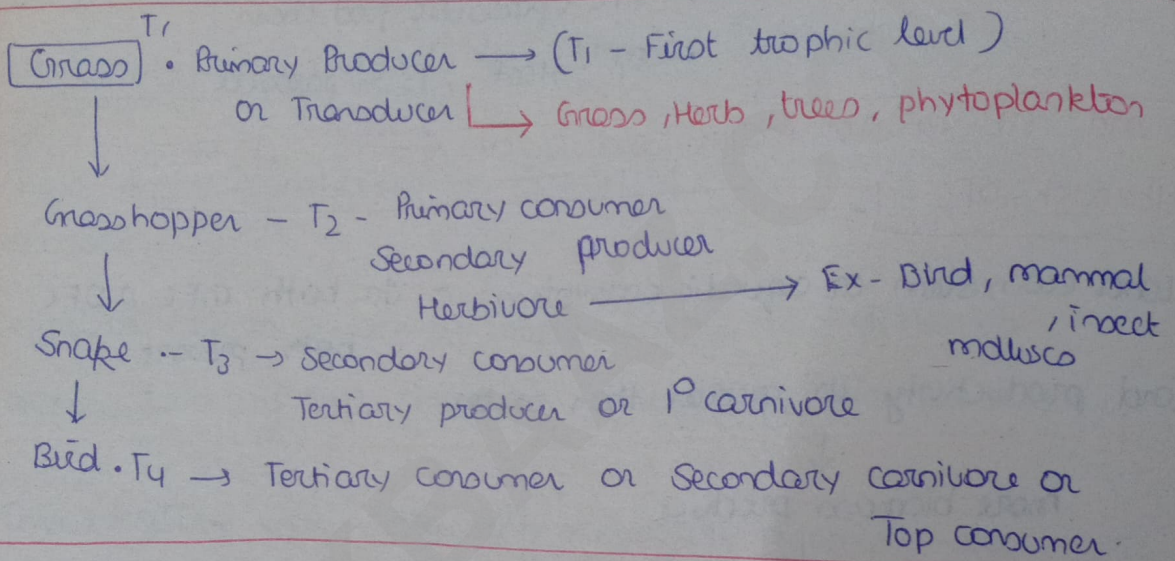 T1
Grass . Primary Producer → (T1 - First trophic level)
or Transducer → Grass, Herb, trees, phytoplankton
Grasshopper - T2 - Primary consumer
Secondary producer
Herbivore → Ex- Bird, mammal
, insect
mollusco
Snake - T3 → Secondary consumer
Tertiary producer or 1° carnivore
Bird . T4 → Tertiary consumer or Secondary carnivore or
Top consumer.